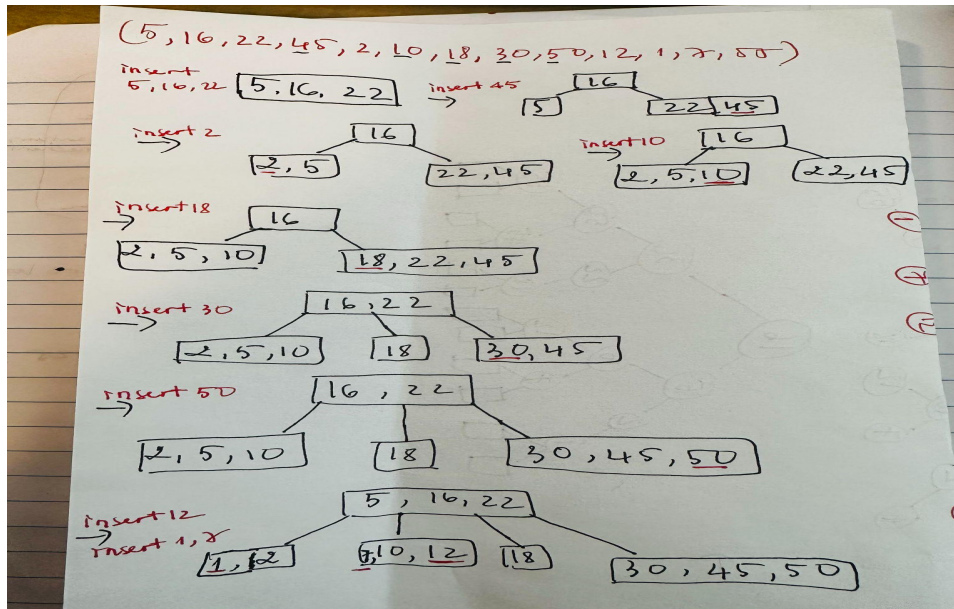 (5, 16, 22, 45, 2, 10, 18, 30, 50, 12, 1, 7, 55)
insert
5, 16, 22
5, 16, 22
insert 45
16
5
22, 45
insert 2
16
2, 5
22, 45
insert 10
16
2, 5, 10
22, 45
insert 18
16
2, 5, 10
18, 22, 45
insert 30
16, 22
2, 5, 10
18
30, 45
insert 50
16, 22
2, 5, 10
18
30, 45, 50
insert 12
insert 1, 7
5, 16, 22
1, 2
7, 10, 12
18
30, 45, 50